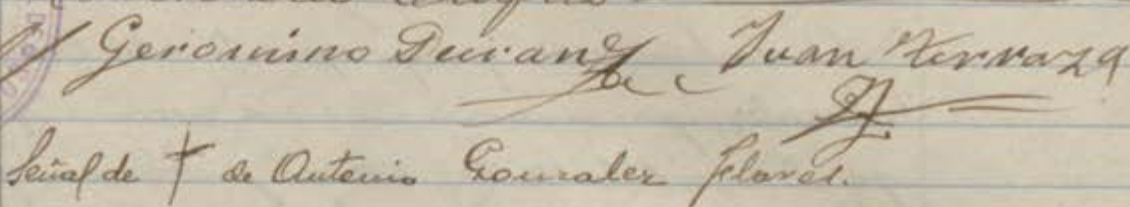 Geronimo Duran Juan Terraza
Señal de † de Antonio Gonzalez Flores.